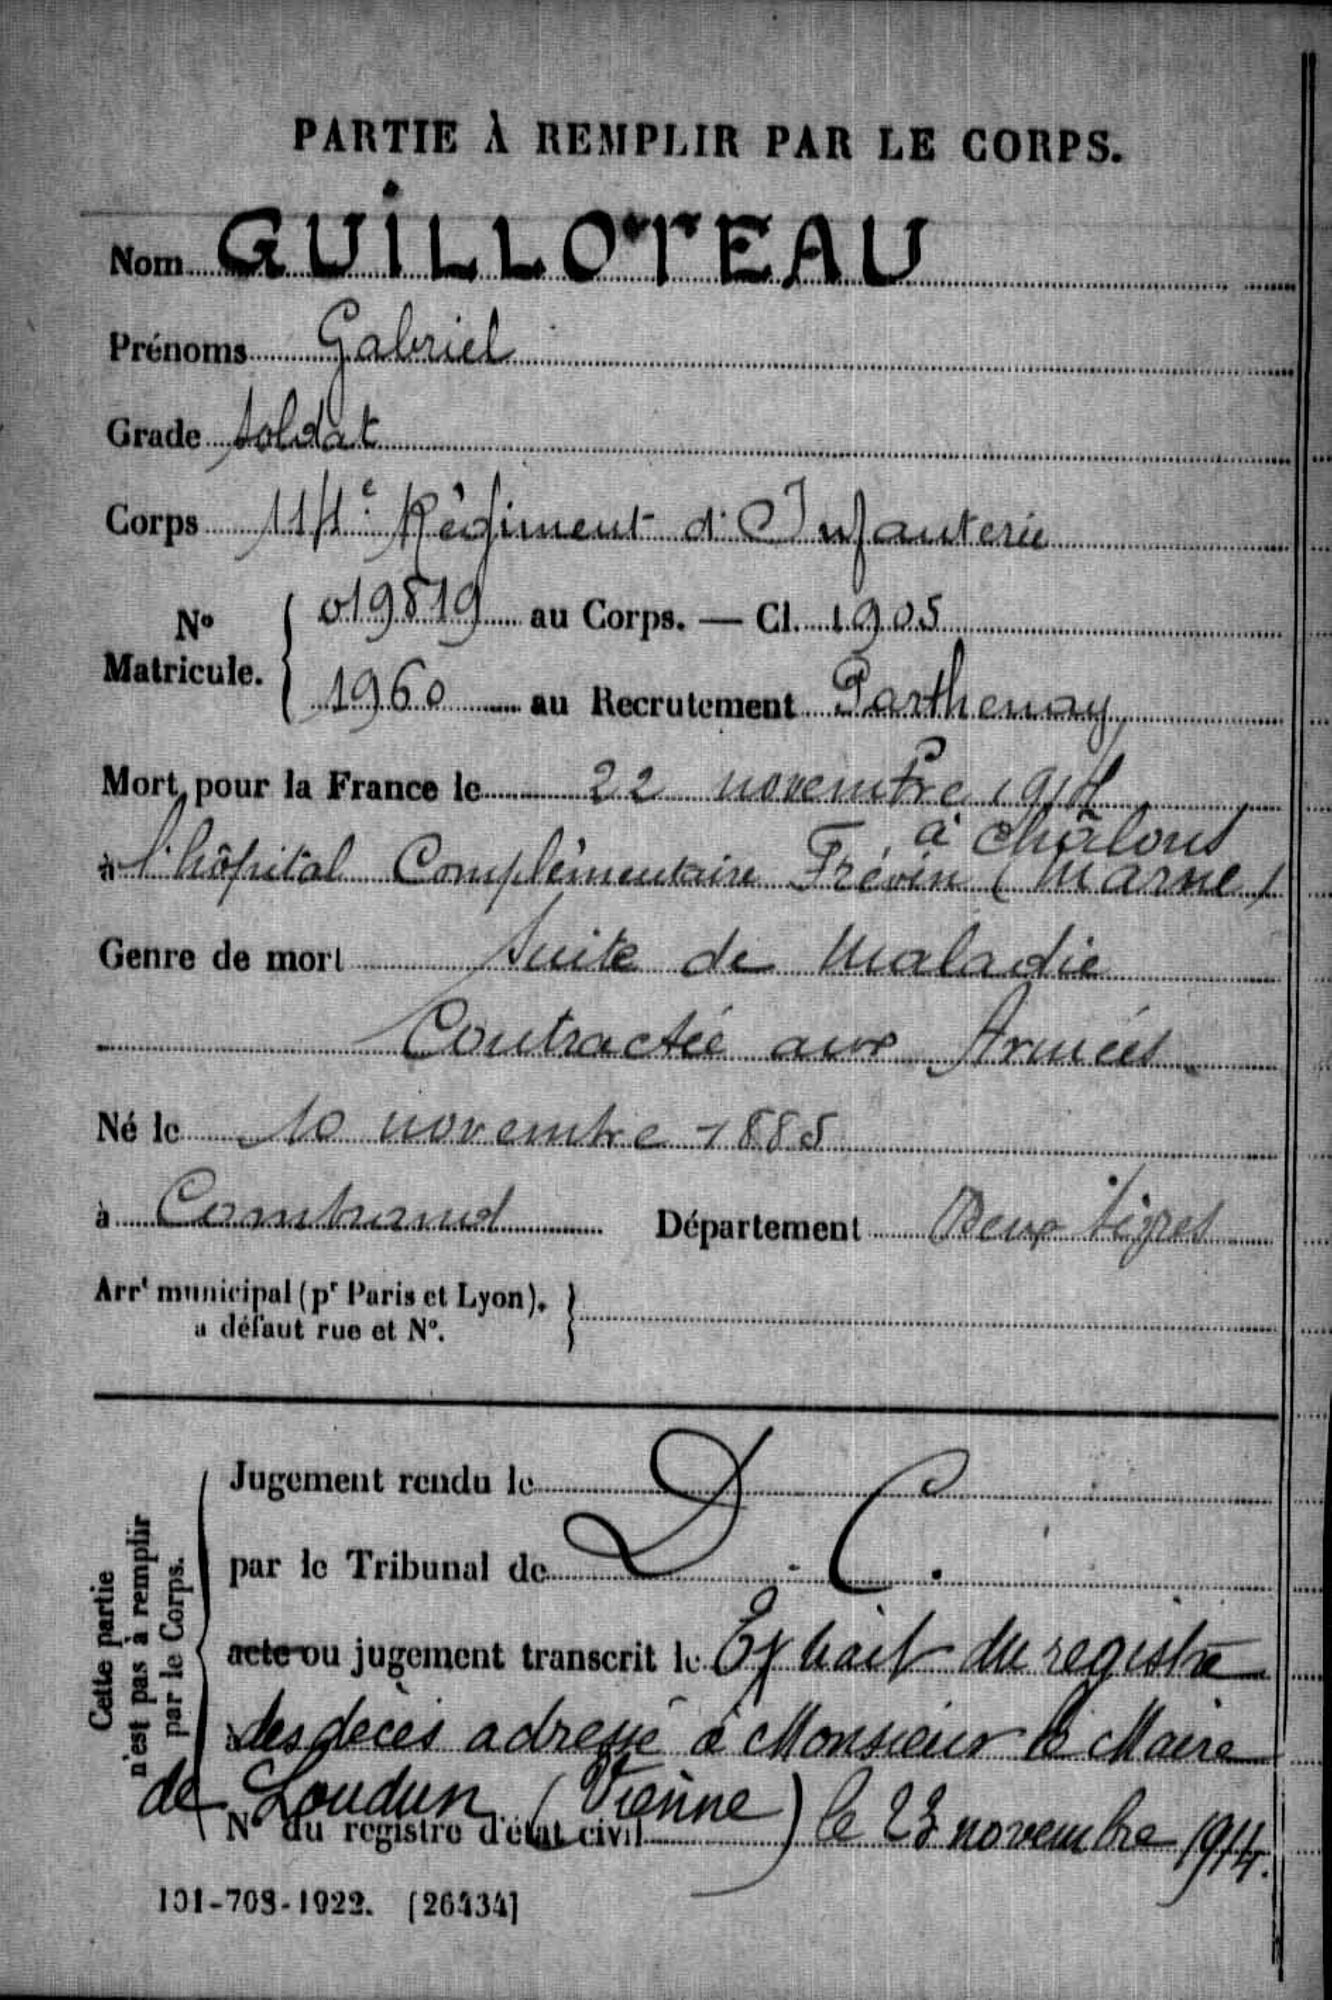 PARTIE À REMPLIR PAR LE CORPS.
Nom GUILLOTEAU
Prénoms Gabriel
Grade soldat
Corps 114e Régiment d'Infanterie
No Matricule. { 019819 au Corps. — Cl. 1905
1960 au Recrutement Parthenay
Mort pour la France le 22 novembre 1914
à Châlons
à l'hôpital Complémentaire Frévin (Marne)
Genre de mort Suite de Maladie
Contractée aux Armées
Né le 10 novembre 1885
à Combrand Département Deux Sèvres
Arrt municipal (pr Paris et Lyon), }
à défaut rue et No.
Cette partie n'est pas à remplir par le Corps.
Jugement rendu le
par le Tribunal de D. C.
acte ou jugement transcrit le Extrait du registre
des décès adressé à Monsieur le Maire
de Loudun (Vienne) le 23 novembre 1914.
No du registre d'état civil
101-708-1922. [26434]